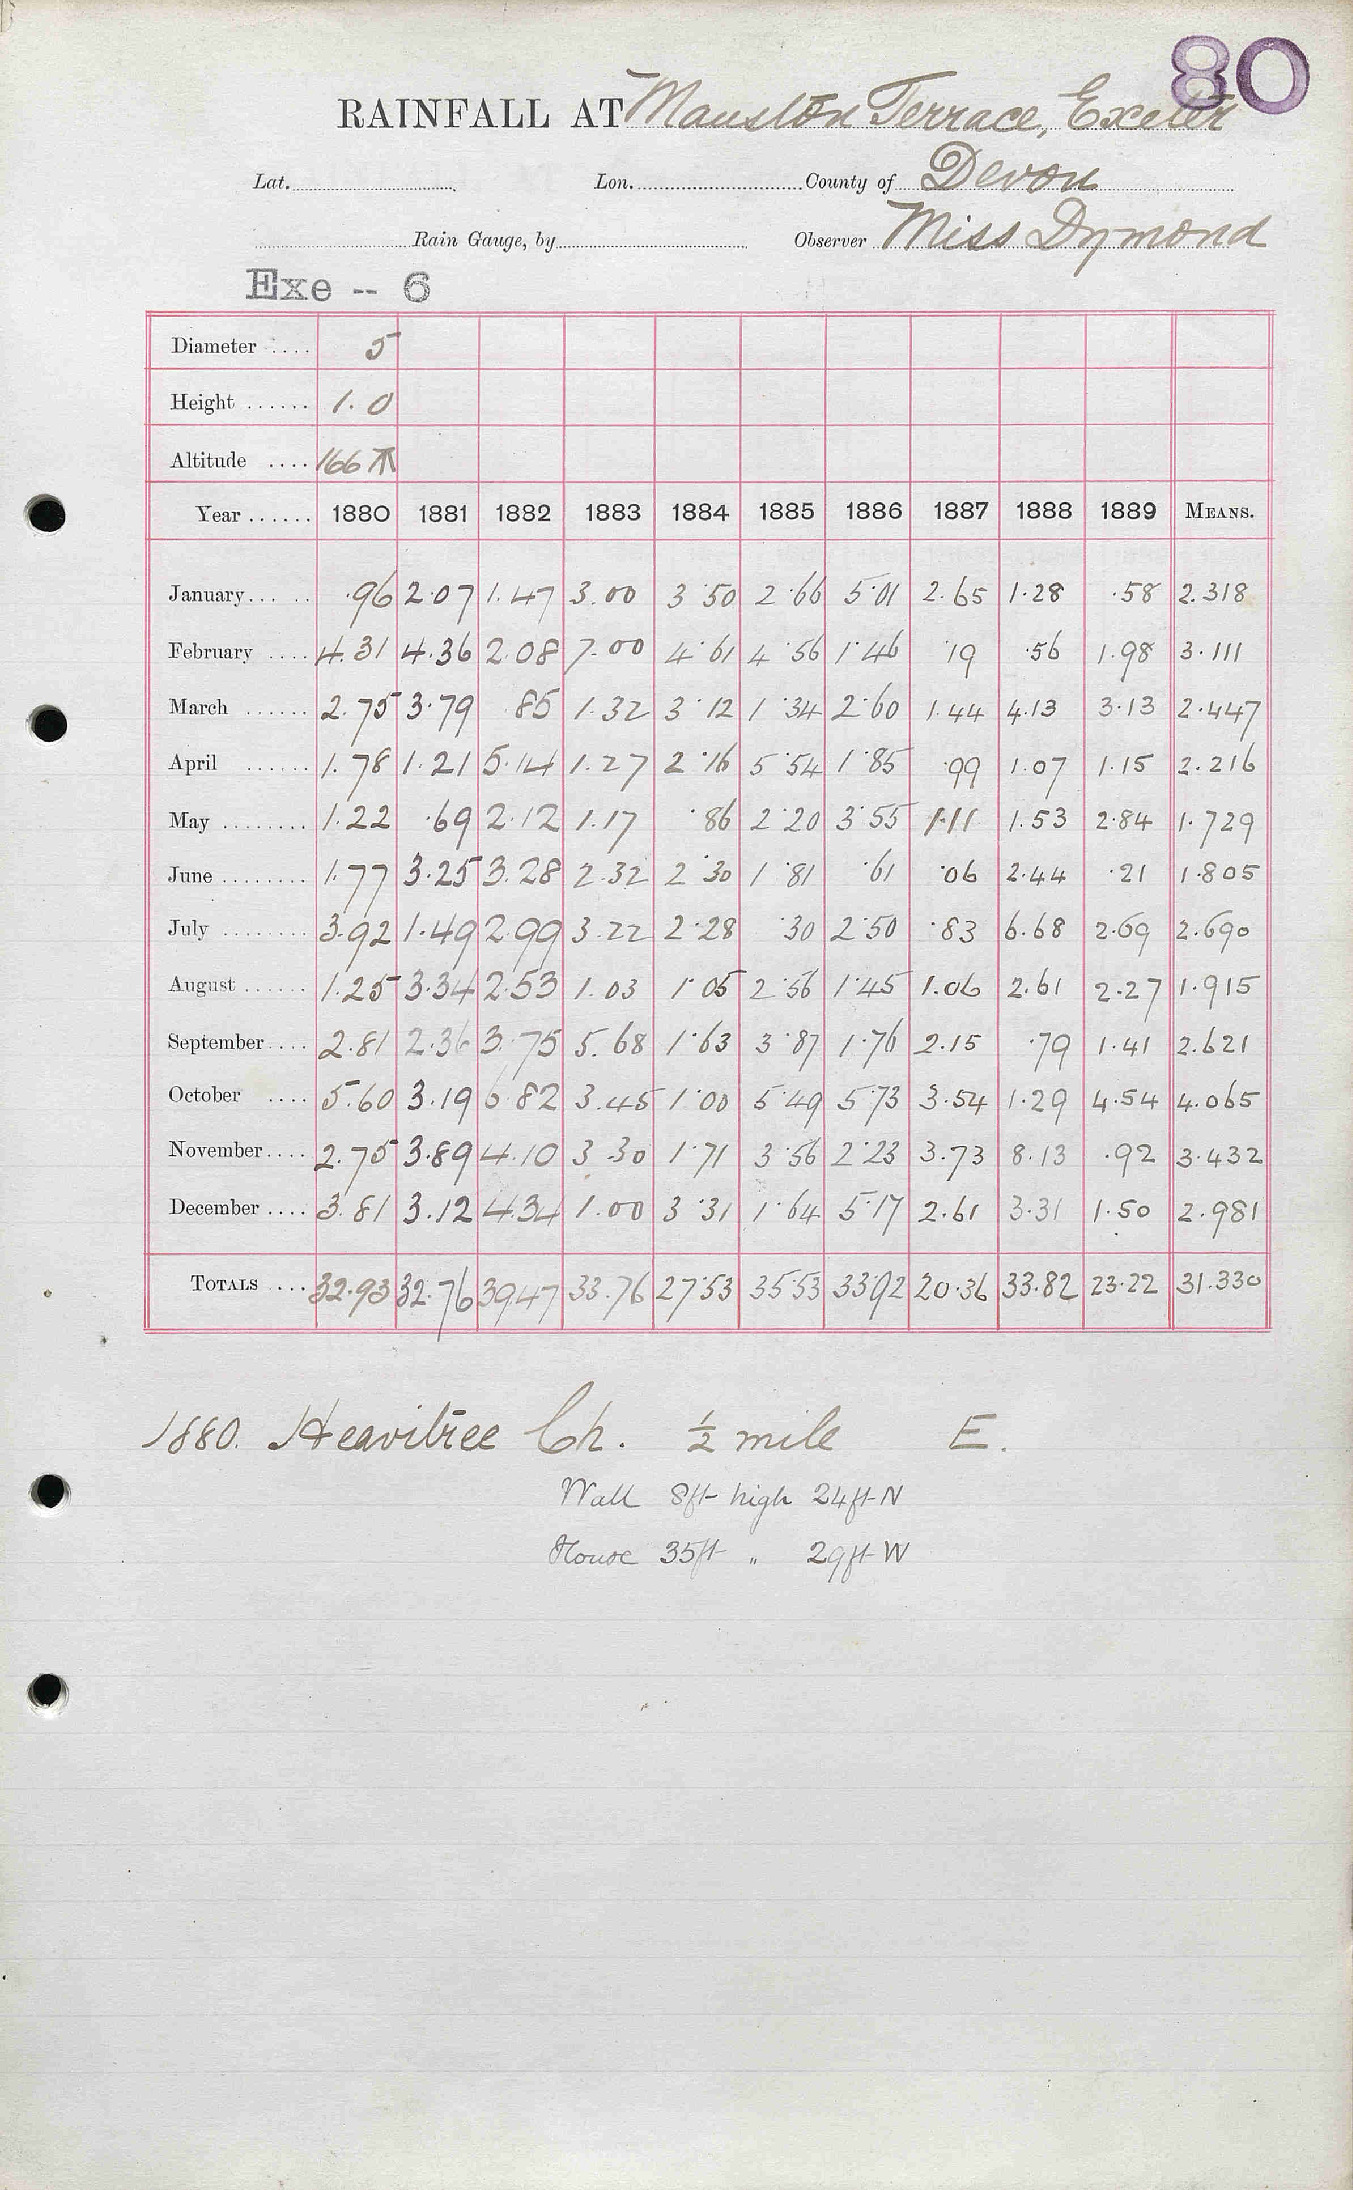 80
RAINFALL AT Manston Terrace, Exeter
Lat. Lon. County of Devon
Rain Gauge, by Observer Miss Dymond
Exe -- 6
Diameter .... 5
Height ...... 1.0
Altitude ....166
Year ...... 1880 1881 1882 1883 1884 1885 1886 1887 1888 1889 MEANS.
January... .. .96 2.07 1.47 3.00 3.50 2.66 5.01 2.65 1.28 .58 2.318
February .... 4.31 4.36 2.08 7.00 4.61 4.56 1.46 .19 .56 1.98 3.111
March ...... 2.75 3.79 .85 1.32 3.12 1.34 2.60 1.44 4.13 3.13 2.447
April ...... 1.78 1.21 5.14 1.27 2.16 5.54 1.85 .99 1.07 1.15 2.216
May ........ 1.22 .69 2.12 1.17 .86 2.20 3.55 1.11 1.53 2.84 1.729
June ........ 1.77 3.25 3.28 2.32 2.30 1.81 .61 .06 2.44 .21 1.805
July ........ 3.92 1.49 2.99 3.22 2.28 .30 2.50 .83 6.68 2.69 2.690
August ...... 1.25 3.34 2.53 1.03 1.05 2.56 1.45 1.06 2.61 2.27 1.915
September.... 2.81 2.36 3.75 5.68 1.63 3.87 1.76 2.15 .79 1.41 2.621
October .... 5.60 3.19 6.82 3.45 1.00 5.49 5.73 3.54 1.29 4.54 4.065
November.... 2.75 3.89 4.10 3.30 1.71 3.56 2.23 3.73 8.13 .92 3.432
December .... 3.81 3.12 4.34 1.00 3.31 1.64 5.17 2.61 3.31 1.50 2.981
TOTALS ... 32.93 32.76 39.47 33.76 27.53 35.53 33.92 20.36 33.82 23.22 31.330
1880. Heavitree Ch. ½ mile E.
Wall 8ft high 24ft N
House 35ft " 29ft W